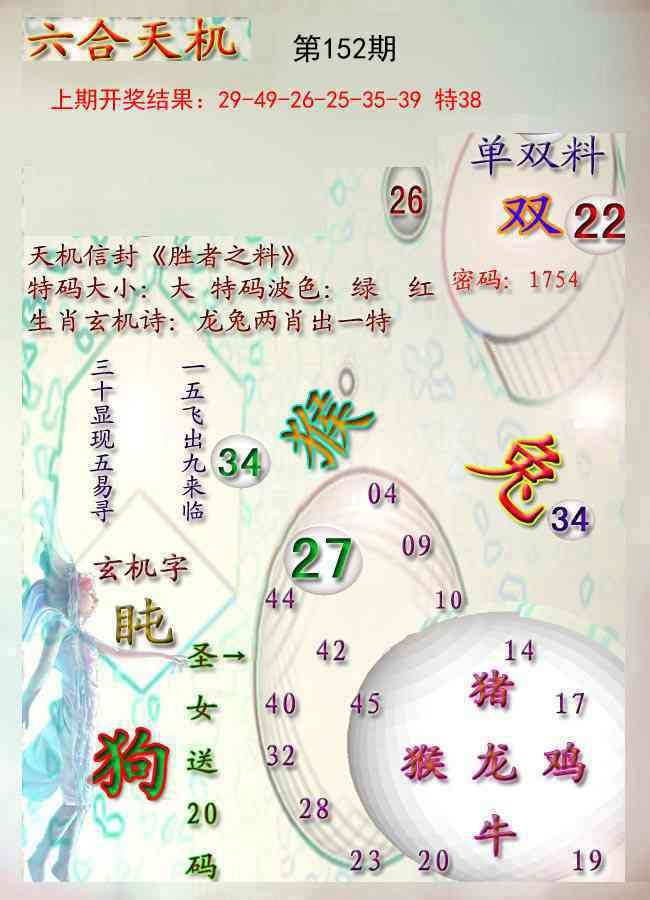 六合天机
第152期
上期开奖结果：29-49-26-25-35-39 特38
单双料
26
双 22
天机信封《胜者之料》
特码大小：大 特码波色：绿 红
密码：1754
生肖玄机诗：龙兔两肖出一特
一五飞出九来临
三十显现五易寻
猴
34
兔
34
04
27
09
玄机字
44
10
盹
圣→
42
14
猪
女
40
45
17
狗
送
32
猴 龙 鸡
20
28
牛
码
23
20
19